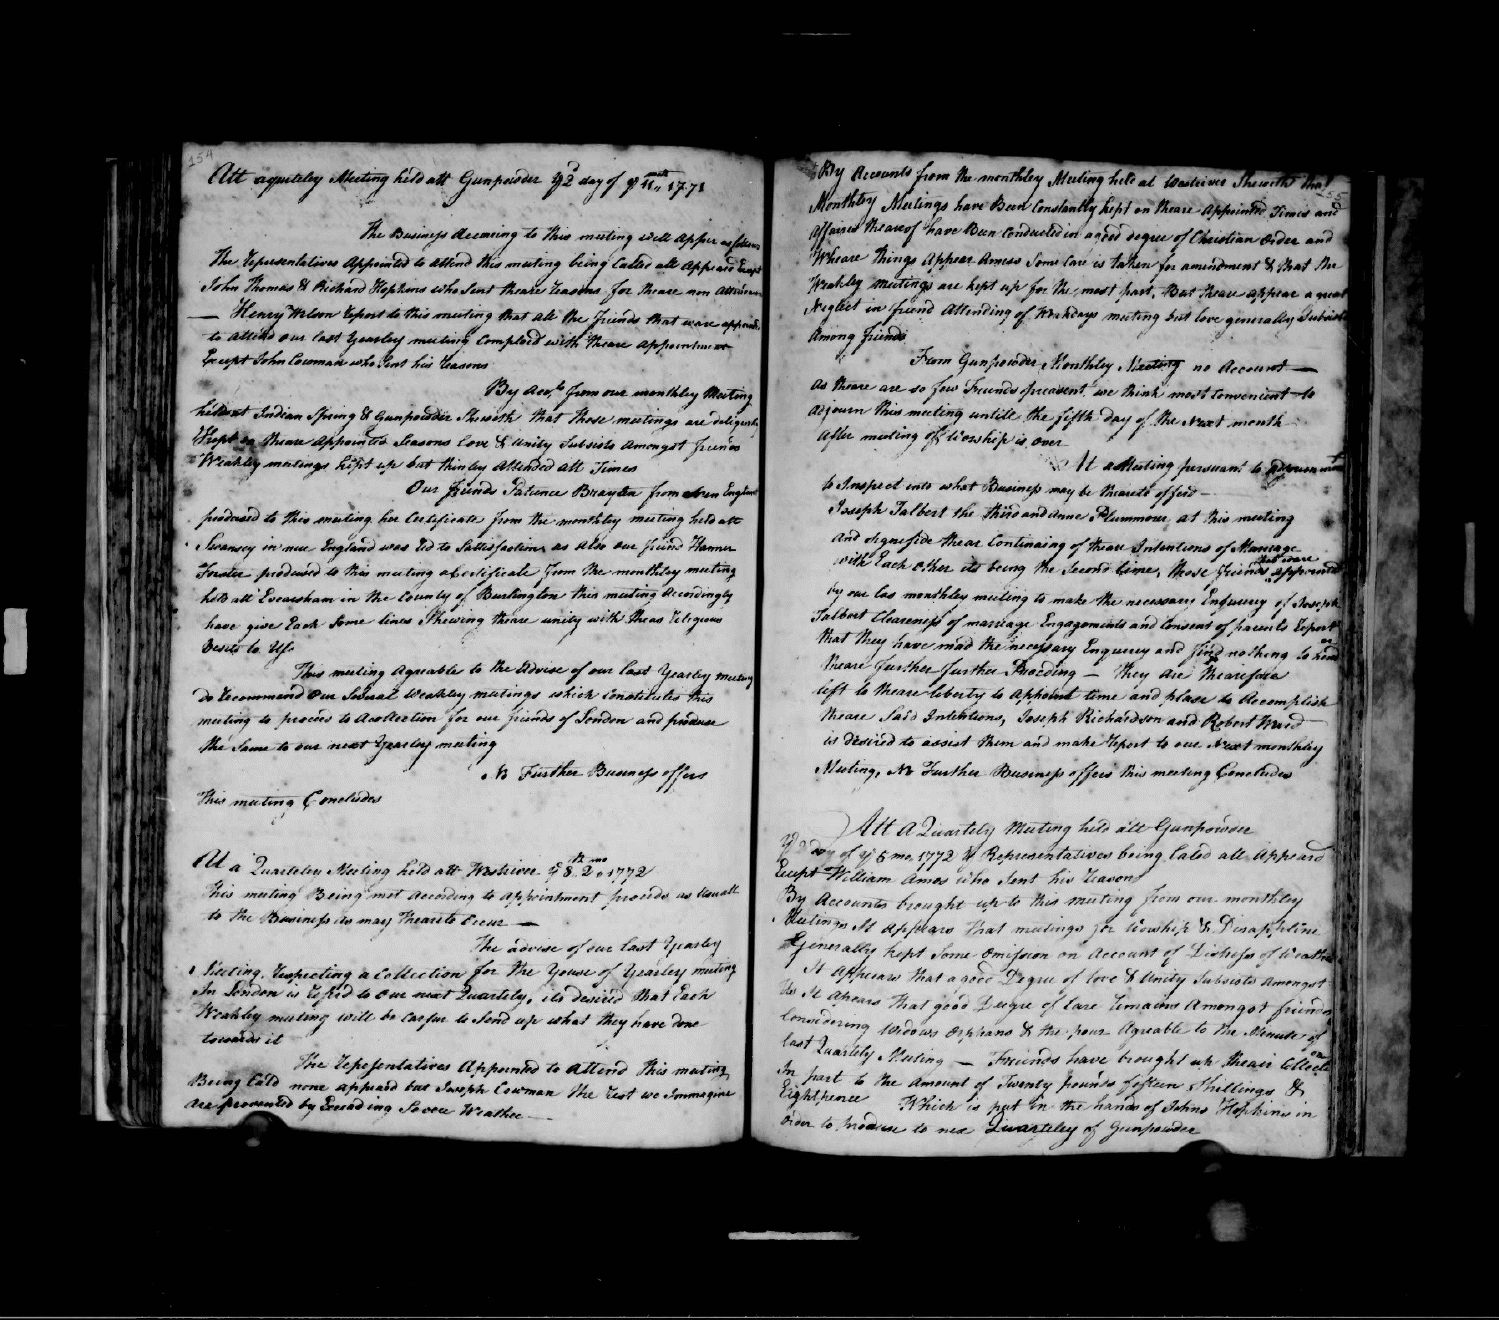 154
Att a quteley Meeting held att Gunpowder ye 2d day of ye 11th mth 1771
The Business Acerneing to this meeting will apper as follows
The Representatives Appointed to attend this meeting being Called all Appeard Except
John Thomas & Richard Hopkins who Sent theare Reasons for theare non Attendance
Henry Wilson Report to this meeting that all the friends that ware appoint
to attend our last Yearley meeting Complaid with theare appointment
Except John Cowman who Sent his Reasons
By Accts from our monthley Meeting
held at Indian Spring & Gunpowder Sheweth that those meetings are deligently
Kept on theare appointed Seasons Love & Unity Subsists amongst friends
Weakley meetings Kept up but thinley attended att Times
Our friends Patience Brayton from New England
prodused to this meeting her Certificate from the monthley meeting held att
Swansey in nue England was Red to Sattisfaction as also our friend Hanner
Froster prodused to this meeting a Certificate from the monthley meeting
held att Evearsham in the County of Burlington this meeting Accordingly
have give Each Some lines Shewing theare unity with theas Religious
Vesits to Us
This meeting Agreable to the Advise of our last Yearley meeting
do Recommend our Several Weakley meetings which Constitutes this
meeting to proceed to Acollection for our friends of London and produse
the Same to our next Yearley meeting
No Further Business offers
This meeting Concludes
At a Quarteley Meeting held att Westriver ye 8th 2mo 1772
This meeting Being met According to appointment proseeds as Usuall
to the Business as may theareto Occur
The advise of our last Yearley
Meeting Respecting a Collection for the Youse of Yearley meeting
In London is Refird to our next Quartely, its desired that Each
Weakley meeting will be Carfur to Send up what they have done
towards it
The Representatives Appointed to Attend this meeting
Being Cald none appeard but Joseph Cowman the Rest we Immagine
are prevented by Exeeading Severe Weather
255
By Accounts from the monthley Meeting held at Westriver Sheweth that
Monthley Meetings have Been Constantly kept on theare Appointed Times and
Affaires theareof have Been Conducted in a good degree of Christian Order and
Wheare things Appear Amess Some Care is taken for amendment & that the
Weakley meetings are kept up for the most part, But theare appear a great
Neglect in friend Attending of Weakdays meeting but love generally Subsists
Among friends
From Gunpowder Monthley Meeting no Account
As theare are so few Freunds preasent we think most Convenient to
Adjourn this meeting untill the fifth day of the Next month
After meeting of Worship is over
At a Meeting pursuant to Adjournment
to Inspect into what Business may be theareto offerd
Joseph Talbert the third and Anne Plummour at this meeting
and signefide thear Continuing of theare Intentions of Marriage
with Each other its being the Second time, those friends that ware appointed
by our las monthley meeting to make the necessary Enquirey of Joseph
Talbert Clearness of marriage Engagements and Consent of parents Report
that they have mad the necessary Enquirey and find nothing to hender
theare further further Proceding — They are Thairefore
left to theare liberty to Appoint time and place to Accomplish
theare Said Intentions, Joseph Richardson and Robert Ward
is desired to assist them and make Report to our Next monthley
Meeting, No Further Business offers this meeting Concludes
Att A Quartely Meeting held att Gunpowder
Ye 2 day of ye 5 mo 1772 ye Representatives being Caled all Appeard
Except William Amos who Sent his Reason
By Accounts brought up to this meeting from our monthley
Meetings It appears that meetings for Worship & Disappline
Generally kept Some Omission on Account of Distress of Weather
It Appears that a good Degree of love & Unity Subsists Amongst
Us It Apears that good Degre of Care Remains Amongst friends
Considering Widows Orphans & the poor Agreable to the Menute of our
last Quartely Meeting — Freunds have brought up theair Collection
In part to the Amount of Twenty pounds fifteen Shillings &
Eightpence Which is put in the hands of Johns Hopkins in
order to Produse to nex Quarteley of Gunpowder